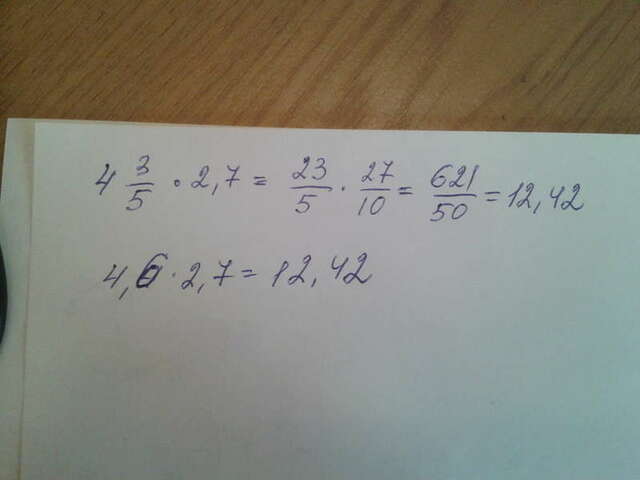 4 3/5 · 2,7 = 23/5 · 27/10 = 621/50 = 12,42
4,6 · 2,7 = 12,42